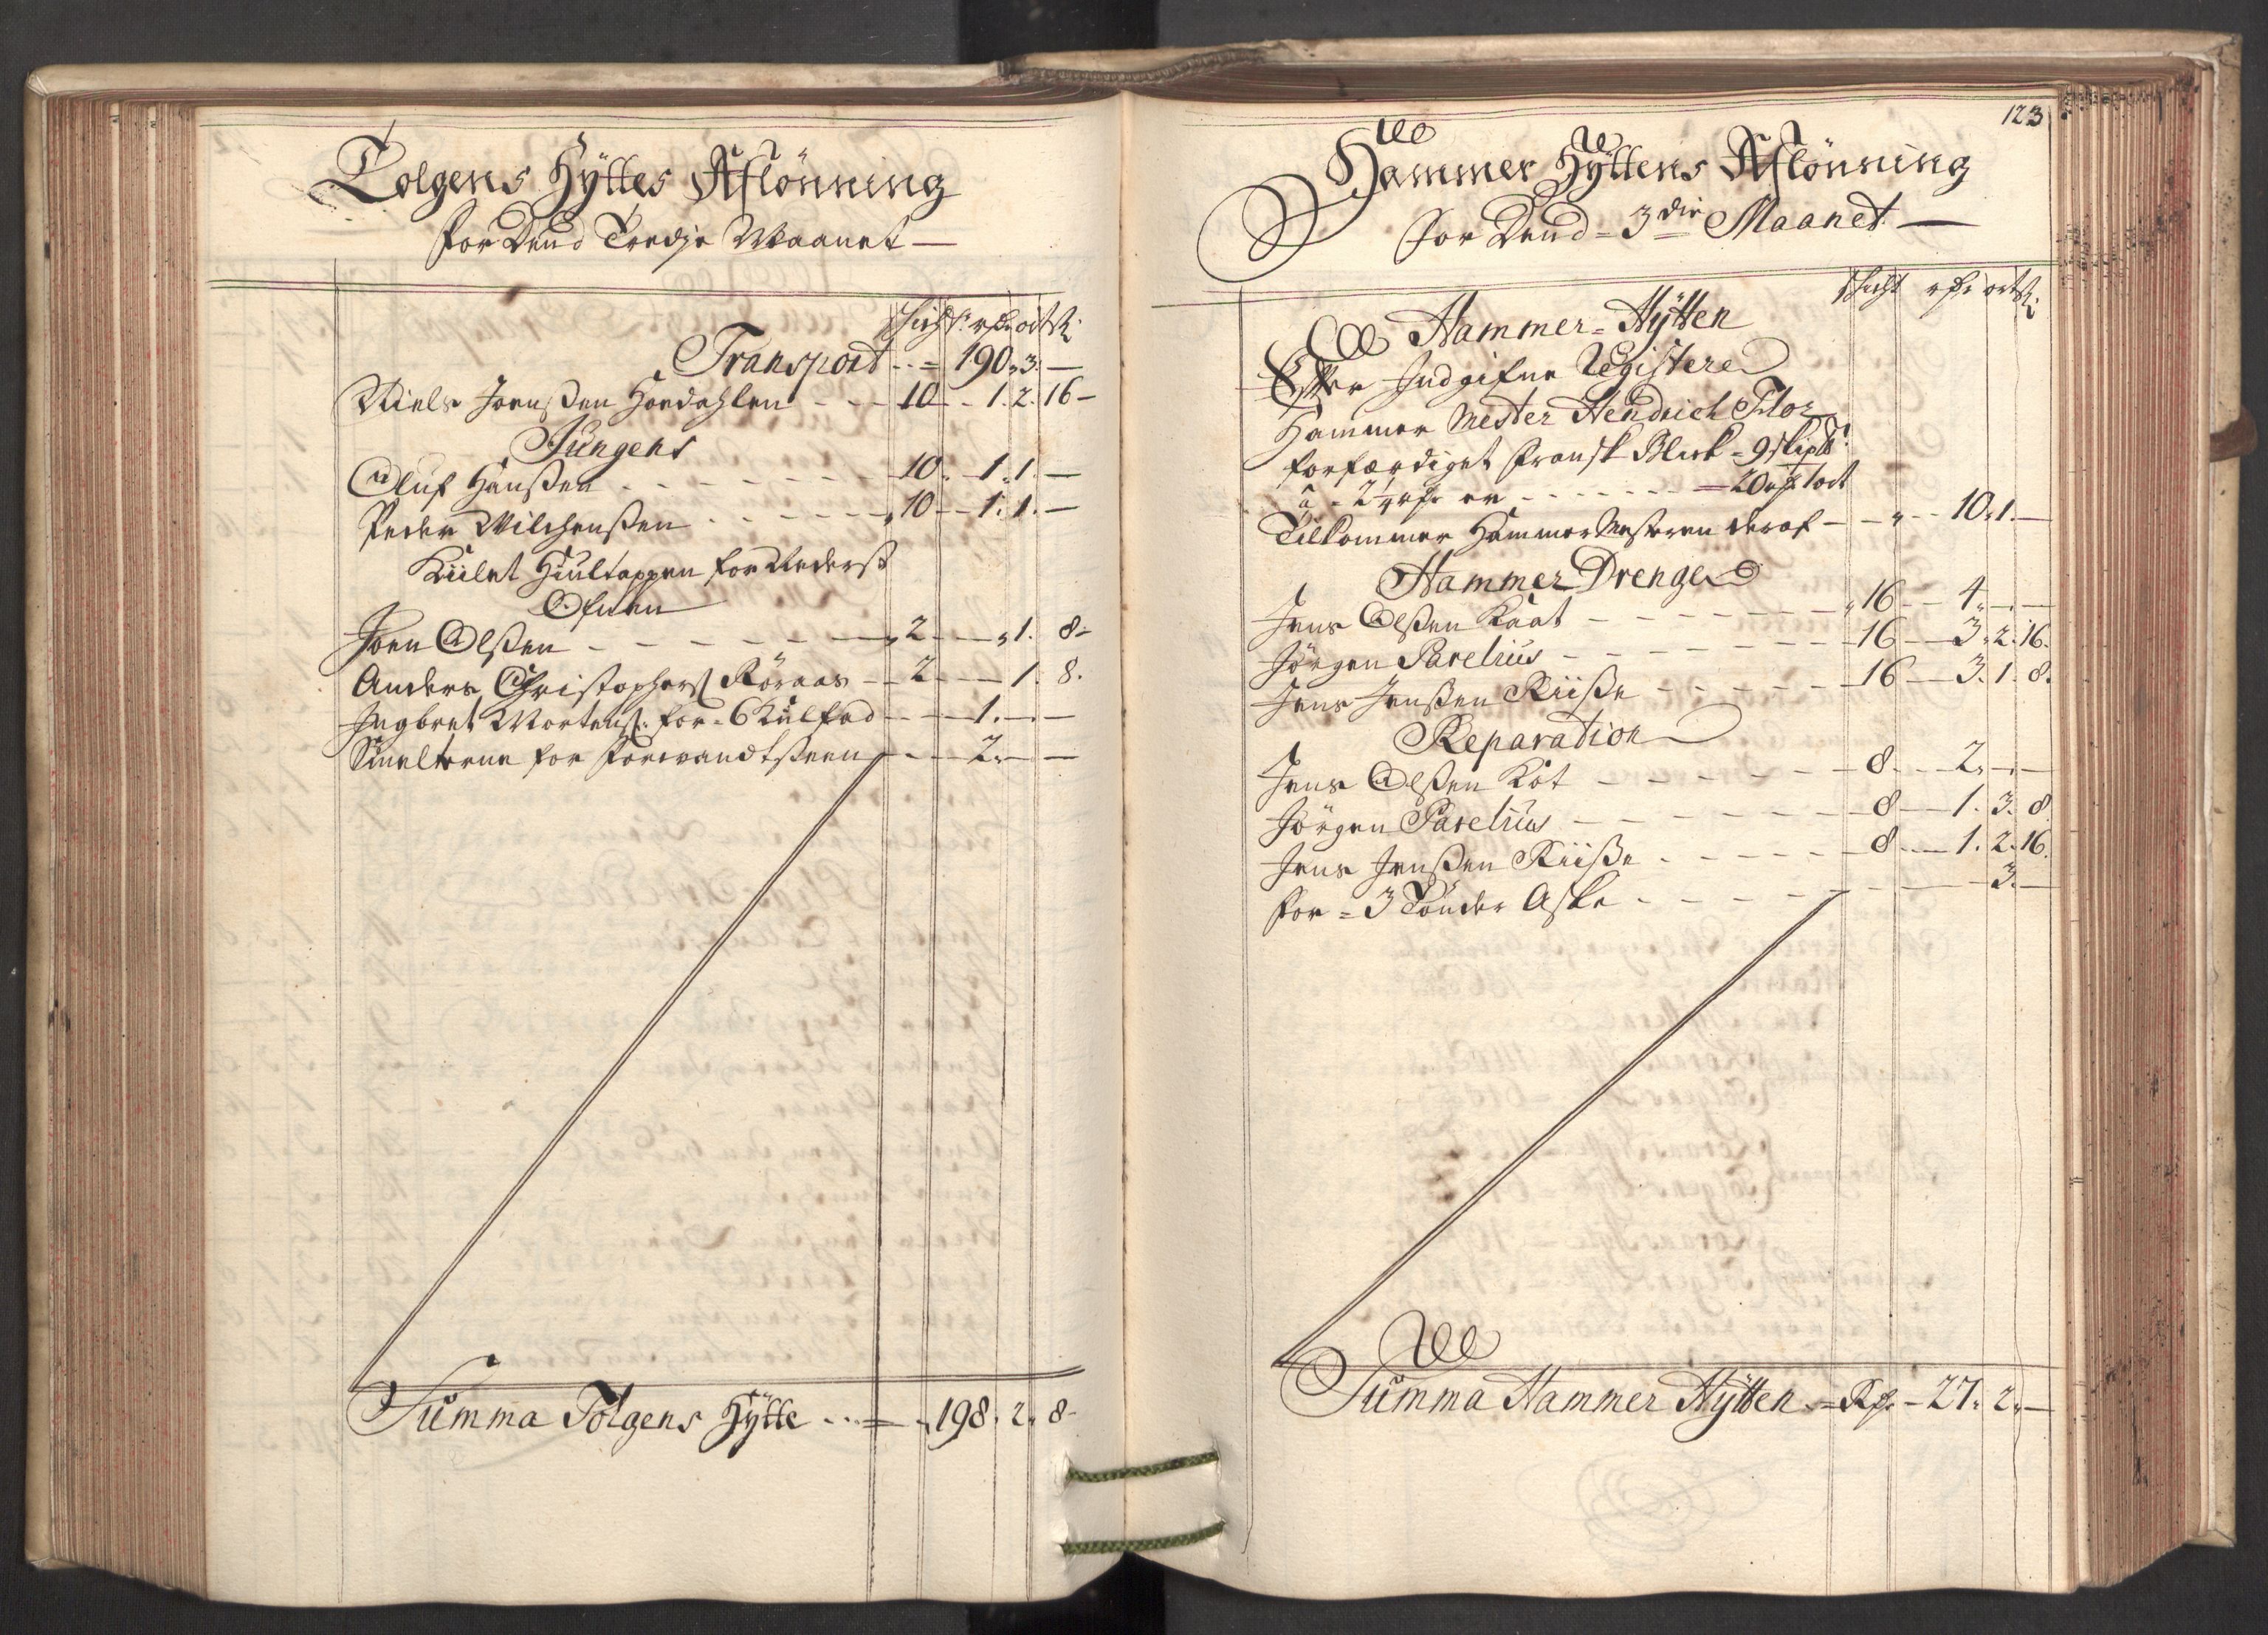 Tolgens Hÿttes Aflönning
for Dend Tredje Maanet —
Schicht rdr ort ß:
Transport - - = 190. 3. —
Niels Joenßen Hordahlen - - - 10 - - 1. 2. 16 -
Jungens
Oluf Hanßen - - - - - - - 10. - 1. 1. —
Peder Wilchenßen - - - - - - 10 - - 1. 1. —
Kiilet Hiultappen for Rederß
Ofnen
Joen Olßen - - - - - - - 2 - - - 1. 8 -
Anders Christophers Röraas - - 2 - - - 1. 8.
Ingbret Mortens: for = 6 Kulfad - - - 1. — —
Smelterne for Forvandtsteen - - - 2. — —
Summa Tolgens Hÿtte - - = - 198. 2. 8 -
123
Hammer Hÿttens Aflönning
for Dend = 3die Maanet —
Schicht rdr ort ß:
Hammer = Hÿtten
Efter Indgifne Registere
Hammer Mester Hendrich Flor
forfærdiget Fransk Blik = 9 skipd:
a - 2 1/4 rdr er - - - - - - = 20 rdr 1 ort
Tilkommer Hammer Mesteren deraf - - - - 10. 1. —
Hammer Drenge
Jens Olßen Kaat - - - - - - - 16 - - 4. — —
Jörgen Parelius - - - - - - - 16 - - 3. 2. 16.
Jens Jenßen Riiße - - - - - - 16 - - 3. 1. 8.
Reparation
Jens Olßen Kot - - - - - - 8. - - 2. — —
Jörgen Parelius - - - - - - 8 - - 1. 3. 8.
Jens Jenßen Riiße - - - - - 8 - - 1. 2. 16.
for = 3 Tönder Aske - - - - - - - 3. —
Summa Hammer Hÿtten = Rdr - 27. 2. —